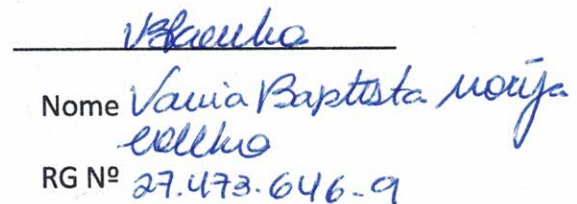 Nome Vania Baptista
Coelho
RG Nº 27.473.646-9